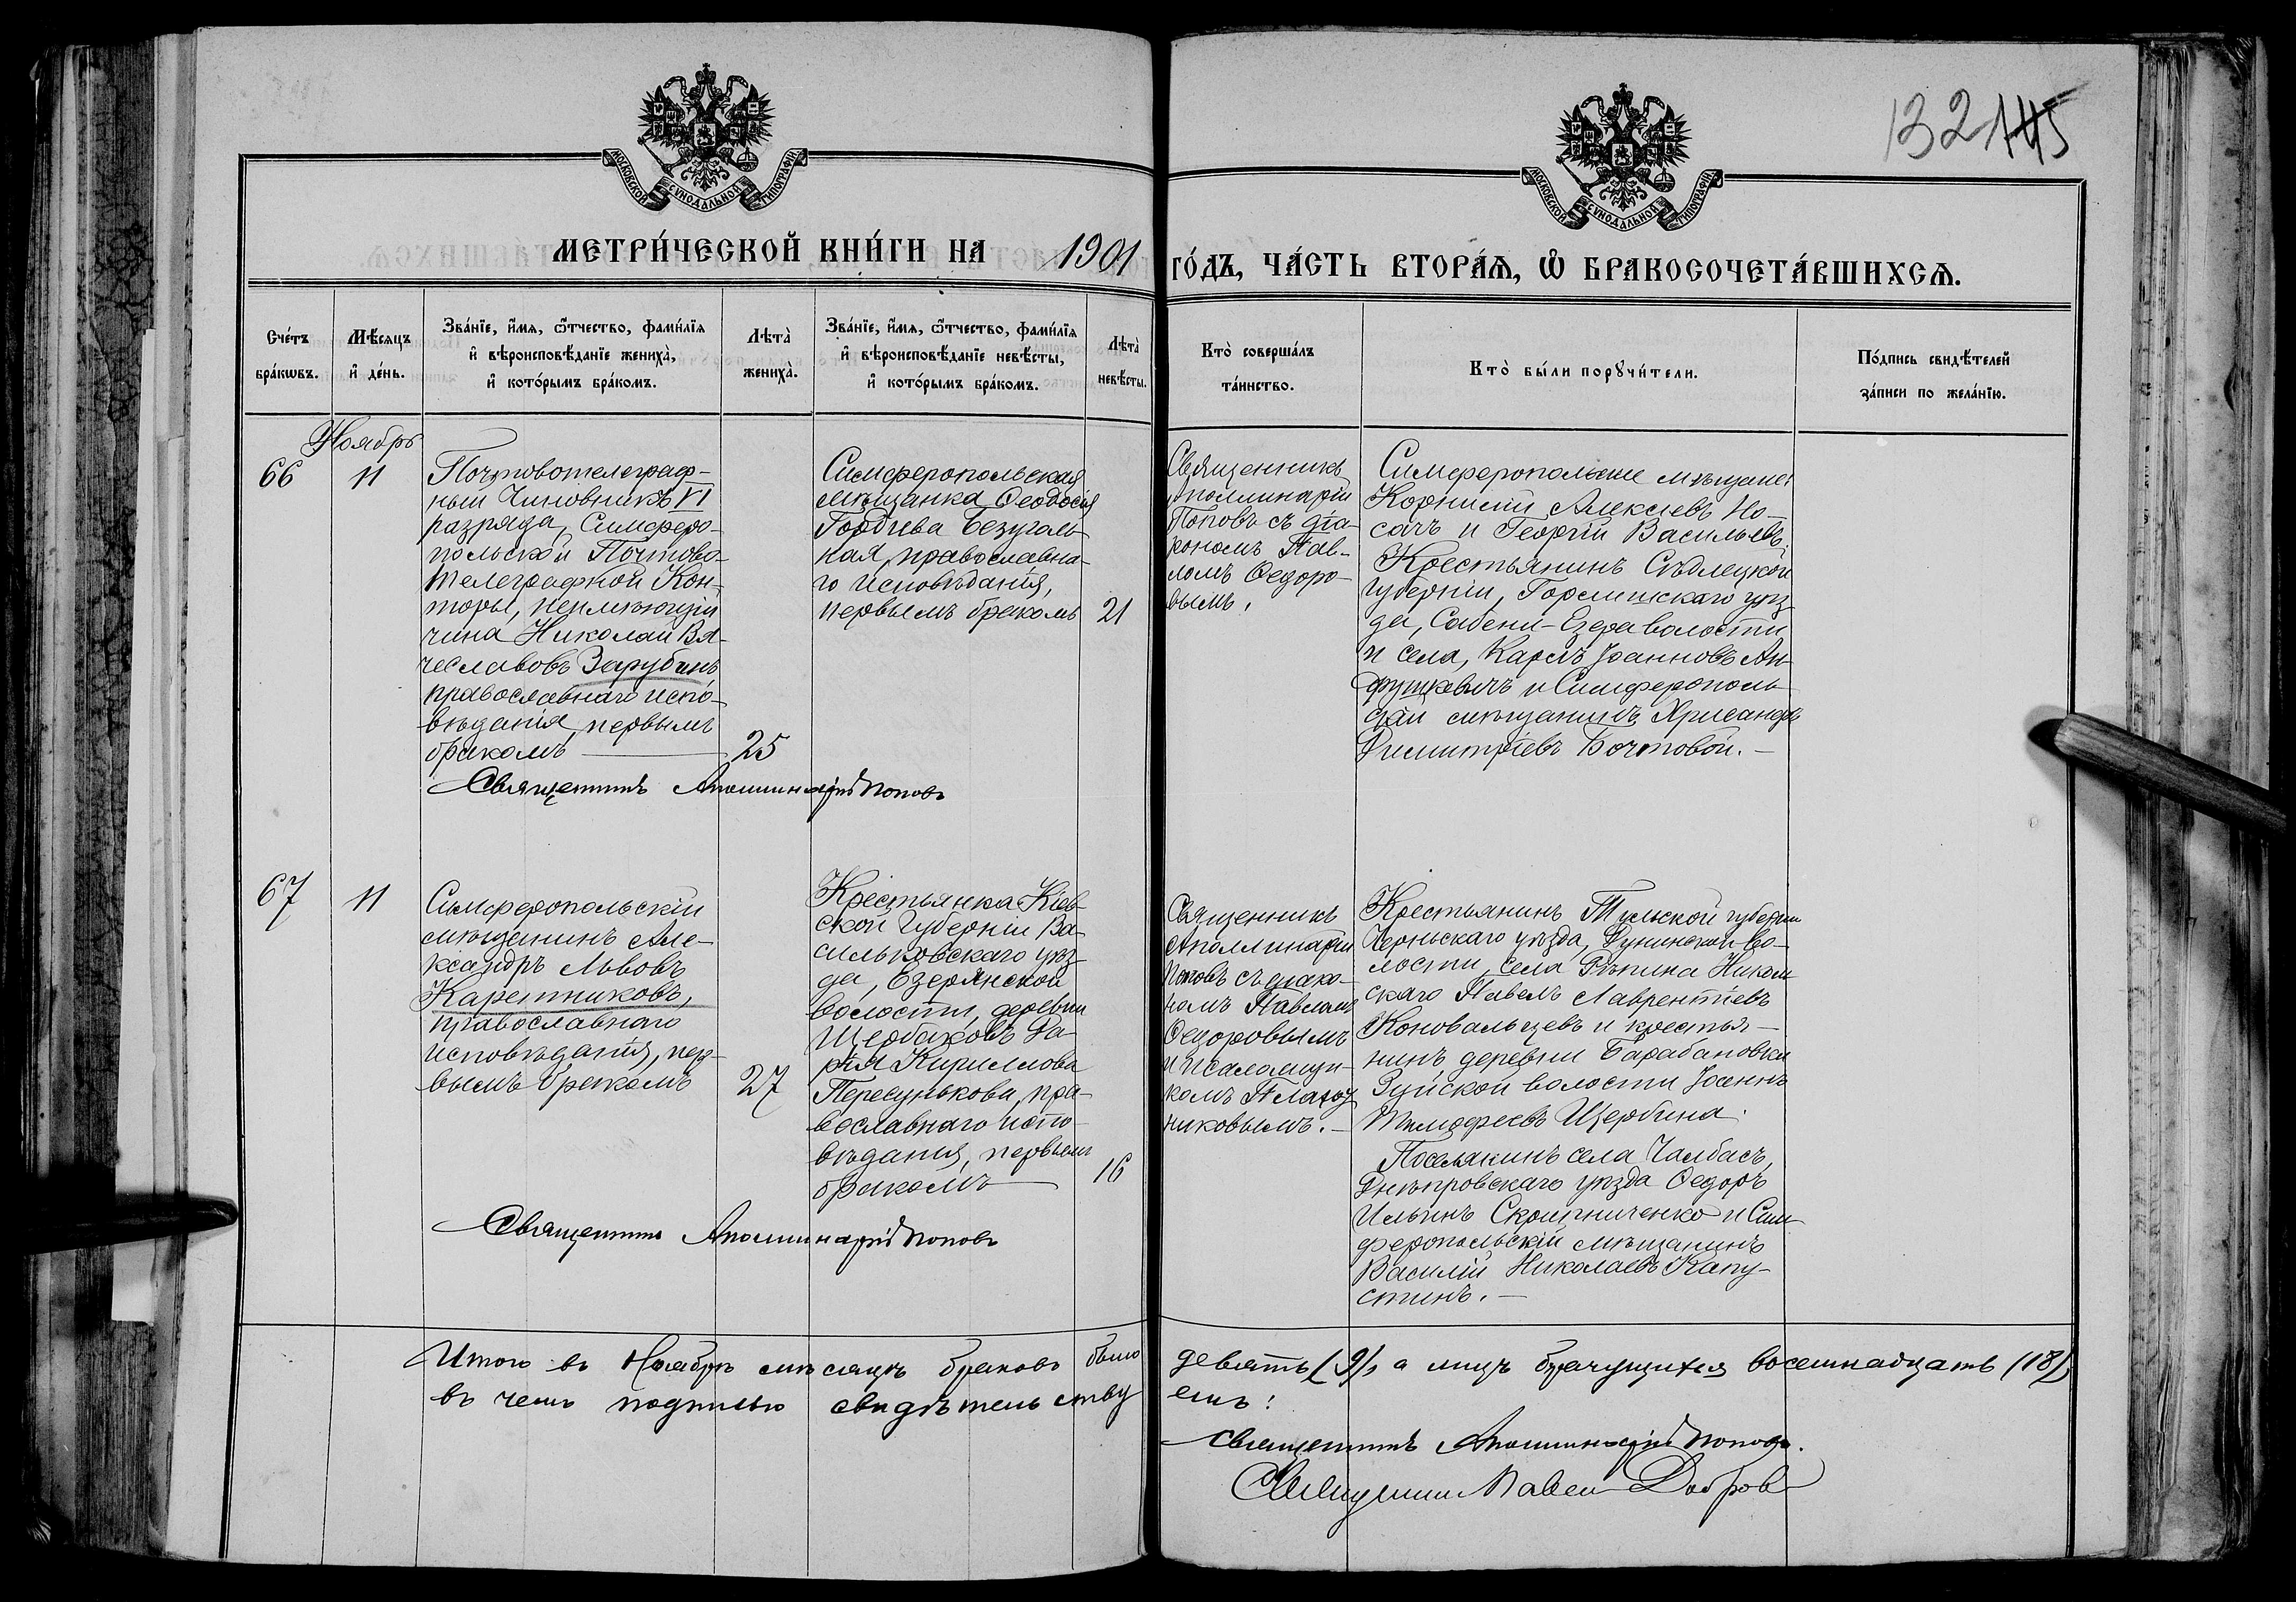 132 145
МОСКОВСКОЙ СѴНОДАЛЬНОЙ ТИПОГРАФІИ
МОСКОВСКОЙ СѴНОДАЛЬНОЙ ТИПОГРАФІИ
МЕТРИ́ЧЕСКОЙ КНИ́ГИ НА 1901 ГО́ДЪ, ЧА́СТЬ ВТОРА́Ѧ, Ѽ БРАКОСОЧЕТА́ВШИХСѦ.
Сче́тъ
бра́кѡвъ.
Мѣ́сяцъ
и҆ де́нь.
Зва́нїе, и҆́мѧ, ѻ҆́тчество, фами́лїѧ
и҆ вѣроисповѣ́данїе жениха̀,
и҆ кото́рымъ бра́комъ.
Лѣта̀
жениха̀.
Зва́нїе, и҆́мѧ, ѻ҆́тчество, фами́лїѧ
и҆ вѣроисповѣ́данїе невѣ́сты,
и҆ кото́рымъ бра́комъ.
Лѣта̀
невѣ́сты.
Кто̀ соверша́лъ
та́инство.
Кто̀ бы́ли порꙋчи́тели.
По́дпись свидѣ́телей
за́писи по жела́нїю.
Ноябрь
66
11
Почтовотелеграф-
ный Чиновникъ VI
разряда, Симферо-
польской Почтово-
телеграфной Кон-
торы, неимѣющій
чина Николай Вя-
чеславовъ Зарубинъ
православнаго испо-
вѣданія, первымъ
бракомъ
25
Симферопольская
мѣщанка Феодосія
Гордѣева Безуголь-
ная, православна-
го исповѣданія,
первымъ бракомъ
21
Священникъ
Аполлинарій
Поповъ съ діа-
кономъ Пав-
ломъ Федоро-
вымъ,
Симферопольскіе мѣщане:
Корнилій Алексѣевъ Но-
сачъ и Георгій Васильевъ.
Крестьянинъ Сѣдлецкой
губерніи, уѣз-
да, волости
и села, Карлъ Іоанновъ Ан-
друшкевичъ и Симферополь-
скій мѣщанинъ Хрисанфъ
Димитріевъ Бочтовой.
Священникъ Аполлинарій Поповъ
67
11
Симферопольскій
мѣщанинъ Але-
ксандръ Львовъ
Каретниковъ,
православнаго
исповѣданія, пер-
вымъ бракомъ
27
Крестьянка Кіев-
ской Губерніи Ва-
сильковскаго уѣз-
да, Езерянской
волости, деревни
Щербаковъ Да-
рія Кириллова
Пересунькова, пра-
вославнаго испо-
вѣданія, первымъ
бракомъ
16
Священникъ
Аполлинарій
Поповъ съ діако-
номъ Павломъ
Федоровымъ
и псаломщи-
комъ
никовымъ.
Крестьянинъ Тульской губерніи
Черньскаго уѣзда, во-
лости, села
скаго Павелъ Лаврентіевъ
Коновальцевъ и крестья-
нинъ деревни Барабановки
Зуйской волости Іоаннъ
Тимофеевъ Щербина.
Поселянинъ села Чалбасъ,
Днѣпровскаго уѣзда Федоръ
Ильинъ Скрипниченко и Сим-
феропольскій мѣщанинъ
Василій Николаевъ Капу-
стинъ.
Священникъ Аполлинарій Поповъ
Итого въ Ноябрѣ мѣсяцѣ браковъ было девять (9), а лицъ брачущихся восемнадцать (18)
въ чемъ подписью свидѣтельствуемъ:
Священникъ Аполлинарій Поповъ.
Священникъ Павелъ Добровъ